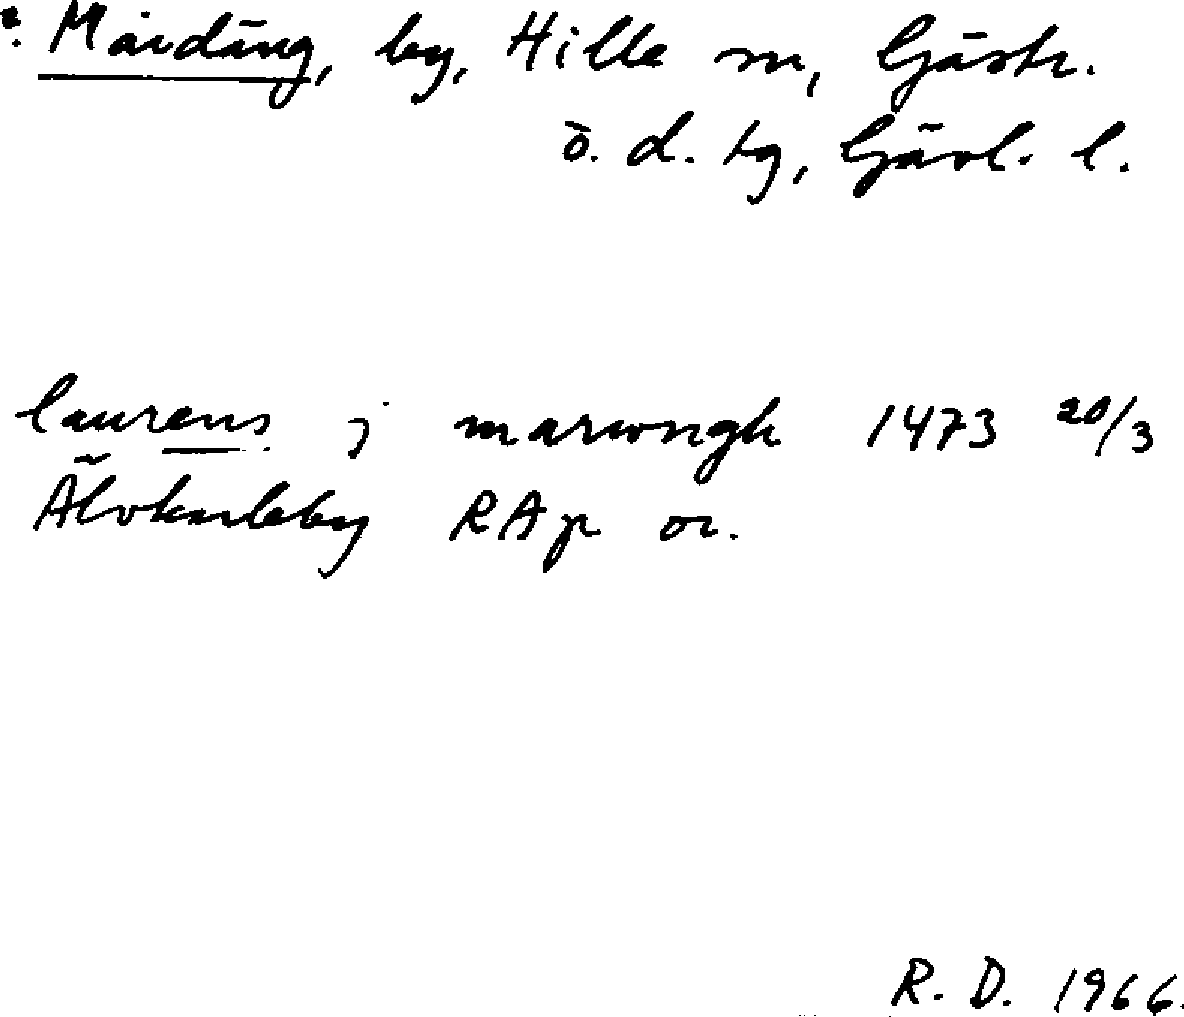 : Mårdäng, by, Hille sn, Gästr.
ö. d. tg, Gävl. l.
laurens j marwngh 1473 20/3
Älvkarleby RAp or.
R. D. 1966.